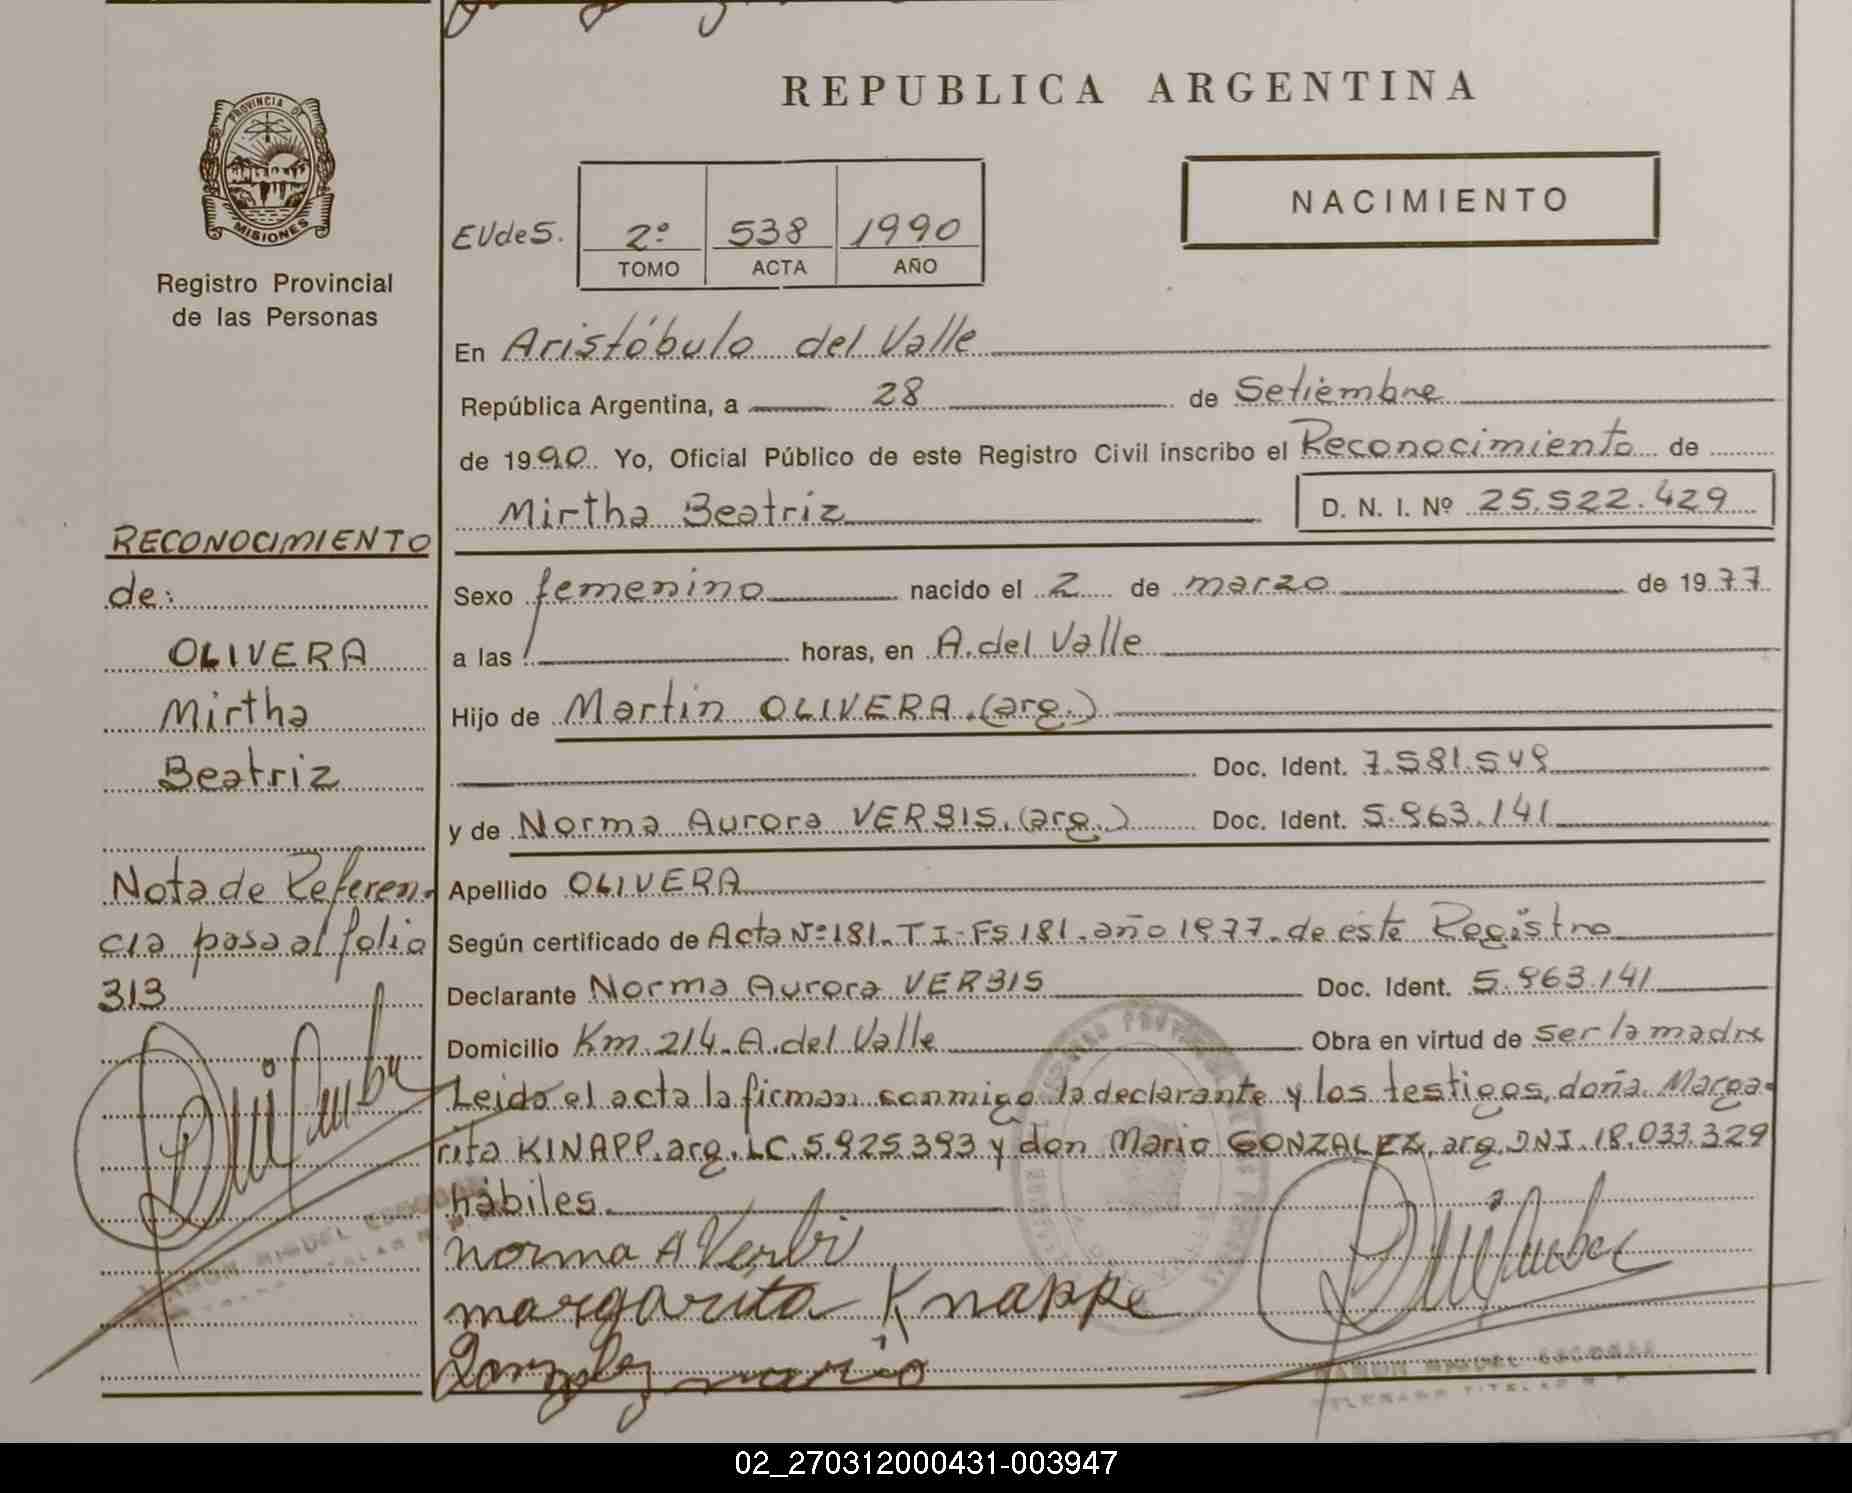 REPUBLICA ARGENTINA
PROVINCIA DE
MISIONES
Registro Provincial
de las Personas
NACIMIENTO
EUdeS. 2º 538 1990
TOMO ACTA AÑO
En Aristóbulo del Valle
República Argentina, a 28 de Setiembre
de 1990. Yo, Oficial Público de este Registro Civil inscribo el Reconocimiento de
Mirtha Beatriz D. N. I. Nº 25.522.429
Sexo femenino nacido el 2 de marzo de 1977
a las horas, en A. del Valle
Hijo de Martin OLIVERA.(arg.)
Doc. Ident. 7.581.549
y de Norma Aurora VERBIS.(arg.) Doc. Ident. 5.963.141
Apellido OLIVERA
Según certificado de Acta Nº181. T I-Fs 181. año 1977. de éste Registro
Declarante Norma Aurora VERBIS Doc. Ident. 5.963.141
Domicilio Km. 214. A. del Valle Obra en virtud de ser la madre
Leido el acta la firman conmigo la declarante y los testigos, doña. Marga-
rita KINAPP. arg. LC. 5.925.393 y don Mario GONZALEZ, arg. DNI. 18.033.329
hábiles.
norma A Verbi
margarita Knappe
Gonzalez mario
RAMON MIGUEL ESCOBAR
RECONOCIMIENTO
de:
OLIVERA
Mirtha
Beatriz
Nota de Referen-
cia pasa al folio
313
RAMON MIGUEL ESCOBAR
02_270312000431-003947